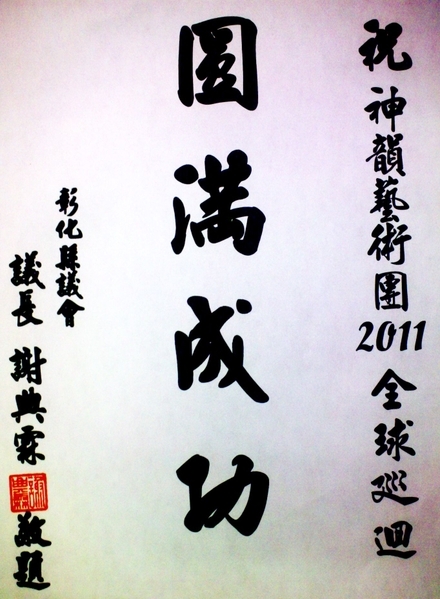 祝神韻藝術團2011全球巡迴
圓滿成功
彰化縣議會
議長謝典霖敬題